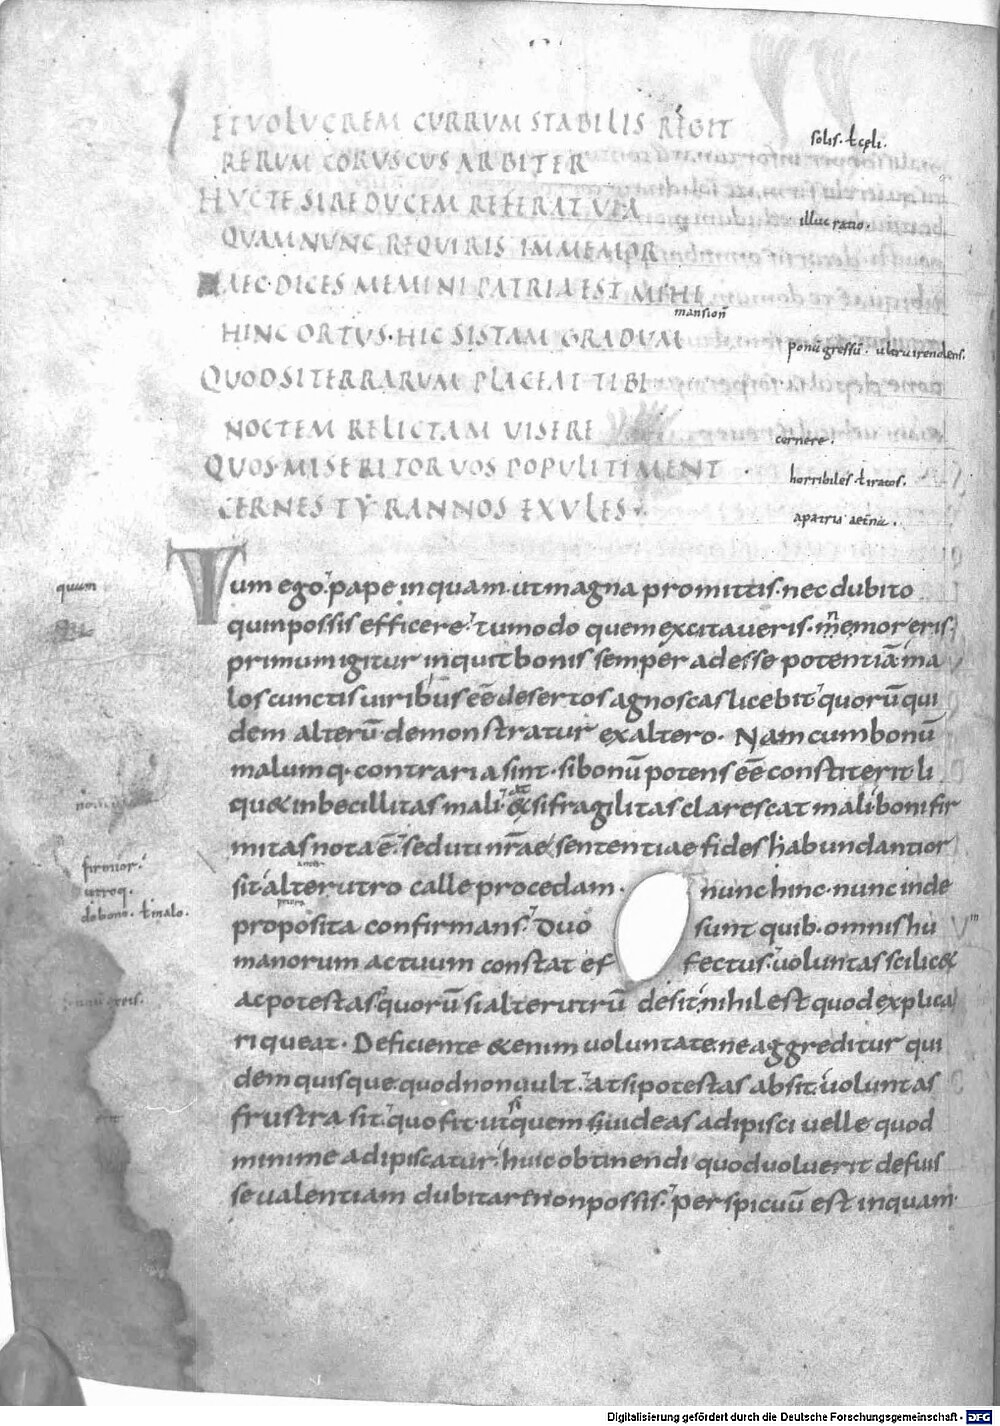 ET VOLVCREM CVRRVM STABILIS REGIT
solis. ł cęli.
RERUM CORUSCUS ARBITER
HVC TE SI REDUCEM REFERAT VIA
illuc ratio.
QUAM NUNC REQUIRIS IMMEMOR
HAEC DICES MEMINI PATRIA EST MIHI
mansioñ
HINC ORTUS. HIC SISTAM GRADUM
ponā gressū.
QUOD SI TERRARUM PLACEAT TIBI
NOCTEM RELICTAM VISERE
cernere.
QUOS MISERI TORVOS POPULI TIMENT
horribiles ł iratos.
CERNES TYRANNOS EXULES
a patria aetnā.
Tum ego. pape inquam. ut magna promittis. nec dubito
quum
quin possis efficere. tu modo quem excitaveris. ne memoreris
primum igitur inquit bonis semper adesse potentiā ma
los cunctis uiribus eē desertos agnoscas licebit. quorū qui
dem alterū demonstratur ex altero. Nam cum bonū
malumq. contraria sint. si bonū potens eē constiterit li
qu& inbecillitas mali. & si fragilitas clarescat mali. boni fir
mitas nota ē. sed uti nr̄ae sententiae fides habundantior
firmior.
sit alterutro calle procedam. nunc hinc. nunc inde
utroq.
de bono. ł malo.
proposita confirmans. Duo sunt quib. omnis hu
manorum actuum constat effectus. uoluntas scilic&
ac potestas. quorū si alterutrū desit. nihil est quod explica
ri queat. Deficiente &enim uoluntate. ne aggreditur qui
dem quisque quod non uult. at si potestas absit. uoluntas
frustra sit. quo fit. ut si quem uideas adipisci uelle quod
minime adipiscatur. huic obtinendi quod uoluerit defuis
se ualentiam dubitare non possis. perspicuū est inquam.
Digitalisierung gefördert durch die Deutsche Forschungsgemeinschaft - DFG